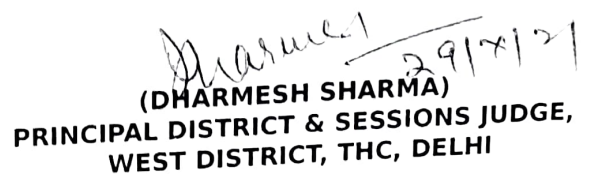 Dharmesh
29/X/21
(DHARMESH SHARMA)
PRINCIPAL DISTRICT & SESSIONS JUDGE,
WEST DISTRICT, THC, DELHI